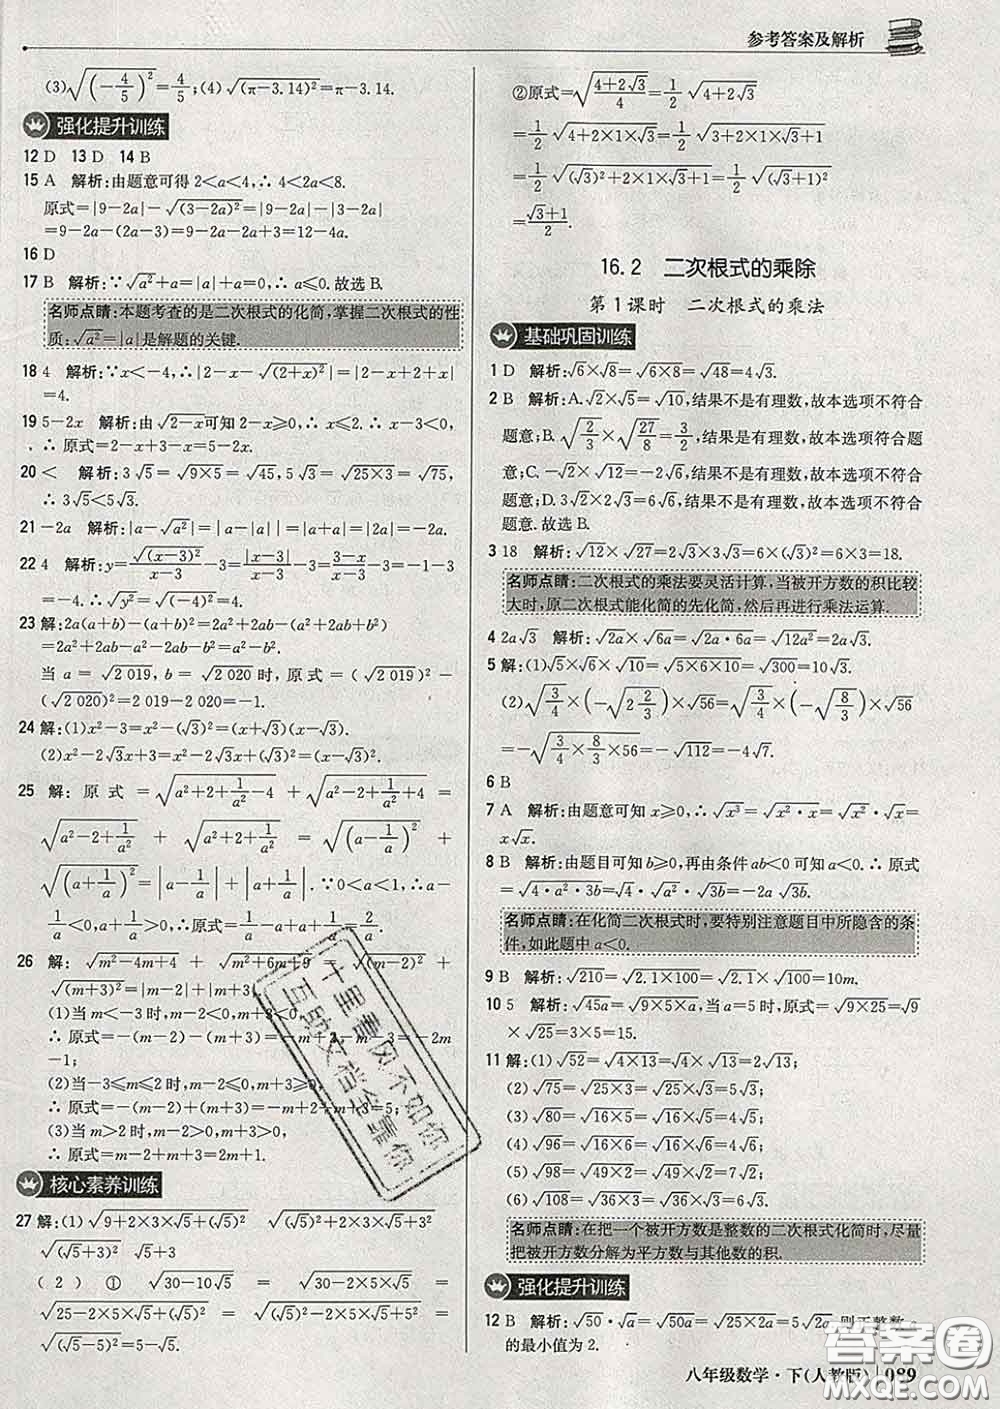 参考答案及解析
(3)√((-4/5)²)=4/5;(4)√((π-3.14)²)=π-3.14.
强化提升训练
12 D 13 D 14 B
15 A 解析:由题意可得 2<a<4,∴ 4<2a<8.
原式=|9-2a|-√((3-2a)²)=|9-2a|-|3-2a|
=9-2a-(2a-3)=9-2a-2a+3=12-4a.
16 D
17 B 解析:∵√(a²)+a=|a|+a=0,∴ a≤0.故选 B.
名师点睛:本题考查的是二次根式的化简,掌握二次根式的性
质:√(a²)=|a|是解题的关键.
18 4 解析:∵x<-4,∴|2-x-√((2+x)²)|=|2-x+2+x|
=4.
19 5-2x 解析:由√(2-x)可知 2-x≥0,∴x≤2.∴ x-3<0,
∴ 原式=2-x+3-x=5-2x.
20 < 解析:3√5=√(9×5)=√45,5√3=√(25×3)=√75,
∴ 3√5<5√3.
21 -2a 解析:|a-√(a²)|=|a-|a||=|a+a|=|2a|=-2a.
22 4 解析:y=√((x-3)²)/(x-3)-3=|x-3|/(x-3)-3=(3-x)/(x-3)-3=-1-3
=-4,∴ √(y²)=√((-4)²)=4.
23 解:2a(a+b)-(a+b)²=2a²+2ab-(a²+2ab+b²)
=2a²+2ab-a²-2ab-b²=a²-b².
当 a=√2 019,b=√2 020时,原式=(√2 019)²-
(√2 020)²=2 019-2 020=-1.
24 解:(1)x²-3=x²-(√3)²=(x+√3)(x-√3).
(2)x²-2√3x+3=x²-2√3x+(√3)²=(x-√3)².
25 解:原式=√(a²+2+1/a²-4)+√(a²-2+1/a²+4)=
√(a²-2+1/a²)+√(a²+2+1/a²)=√((a-1/a)²)+
√((a+1/a)²)=|a-1/a|+|a+1/a|.∵0<a<1,∴a-
1/a<0,a+1/a>0,∴原式=-a+1/a+a+1/a=2/a.
26 解:√(m²-4m+4)+√(m²+6m+9)=√((m-2)²)+
√((m+3)²)=|m-2|+|m+3|.
(1)当 m<-3 时,m-2<0,m+3<0,
∴ 原式=-(m-2)-(m+3)=-m+2-m-3=-2m
-1;
(2)当-3≤m≤2 时,m-2≤0,m+3≥0,
∴ 原式=-(m-2)+(m+3)=-m+2+m+3=5;
(3)当 m>2 时,m-2>0,m+3>0,
∴ 原式=m-2+m+3=2m+1.
核心素养训练
27 解:(1)√(9+2×3×√5+(√5)²) √(3²+2×3×√5+(√5)²)
√((√5+3)²) √5+3
(2)①√(30-10√5)=√(30-2×5×√5)=
√(25-2×5×√5+5)=√((√5)²-2×5×√5+5²)=
√((√5-5)²)=5-√5.
②原式=√((4+2√3)/4)=1/2√(4+2√3)
=1/2√(4+2×1×√3)=1/2√(3+2×1×√3+1)
=1/2√((√3)²+2×1×√3+1)=1/2√((√3+1)²)
=(√3+1)/2.
16.2 二次根式的乘除
第 1 课时 二次根式的乘法
基础巩固训练
1 D 解析:√6×√8=√(6×8)=√48=4√3.
2 B 解析:A.√2×√5=√10,结果不是有理数,故本选项不符合
题意;B.√(2/3)×√(27/8)=3/2,结果是有理数,故本选项符合题
意;C.-√2×√12=-2√6,结果不是有理数,故本选项不符合
题意;D.3√2×2√3=6√6,结果不是有理数,故本选项不符合
题意.故选 B.
3 18 解析:√12×√27=2√3×3√3=6×(√3)²=6×3=18.
名师点睛:二次根式的乘法要灵活计算,当被开方数的积比较
大时,原二次根式能化简的先化简,然后再进行乘法运算.
4 2a√3 解析:√2a×√6a=√(2a·6a)=√(12a²)=2a√3.
5 解:(1)√5×√6×√10=√(5×6×10)=√300=10√3.
(2)√(3/4)×(-√(2 2/3))×√56=√(3/4)×(-√(8/3))×√56
=-√(3/4×8/3×56)=-√(4×4×7)=-4√7.
6 B
7 A 解析:由题意可知 x≥0,∴√(x³)=√(x²·x)=√(x²)×√x=
x√x.
8 B 解析:由题目可知 b≥0,再由条件 ab<0 可知 a<0.∴ 原式
=√(4·a²·3b)=√4·√(a²)·√3b=-2a√3b.
名师点睛:在化简二次根式时,要特别注意题目中所隐含的条
件,如此题中 a<0.
9 B 解析:√210=√(2.1×100)=√2.1×√100=10m.
10 5 解析:√45a=√(9×5×a),当 a=5 时,原式=√(9×25)=√9
×√25=3×5=15.
11 解:(1)√52=√(4×13)=√4×√13=2√13;
(2)√75=√(25×3)=√25×√3=5√3;
(3)√80=√(16×5)=√16×√5=4√5;
(4)√96=√(16×6)=√16×√6=4√6;
(5)√98=√(49×2)=√49×√2=7√2;
(6)√150=√(25×6)=√25×√6=5√6.
名师点睛:在把一个被开方数是整数的二次根式化简时,尽量
把被开方数分解为平方数与其他数的积.
强化提升训练
12 B 解析:√50·√a=√50a=√(25×2a)=5√2a,则正整数 a
的最小值为 2.
八年级数学·下(人教版) 089
十里春风不如你
互助文档全靠你
答案圈
MXQE.COM